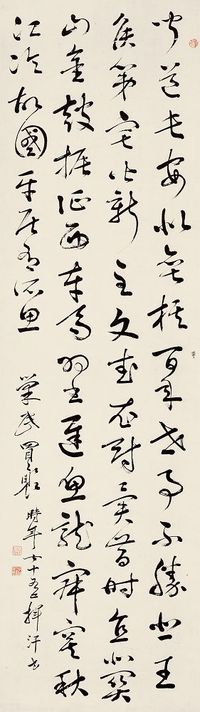 聞道長安似奕棋百年世事不勝悲王
侯第宅皆新主文武衣冠異昔時直北關
山金鼓振征西車馬羽書遲魚龍寂寞秋
江冷故國平居有所思
時年六十五揮汗書